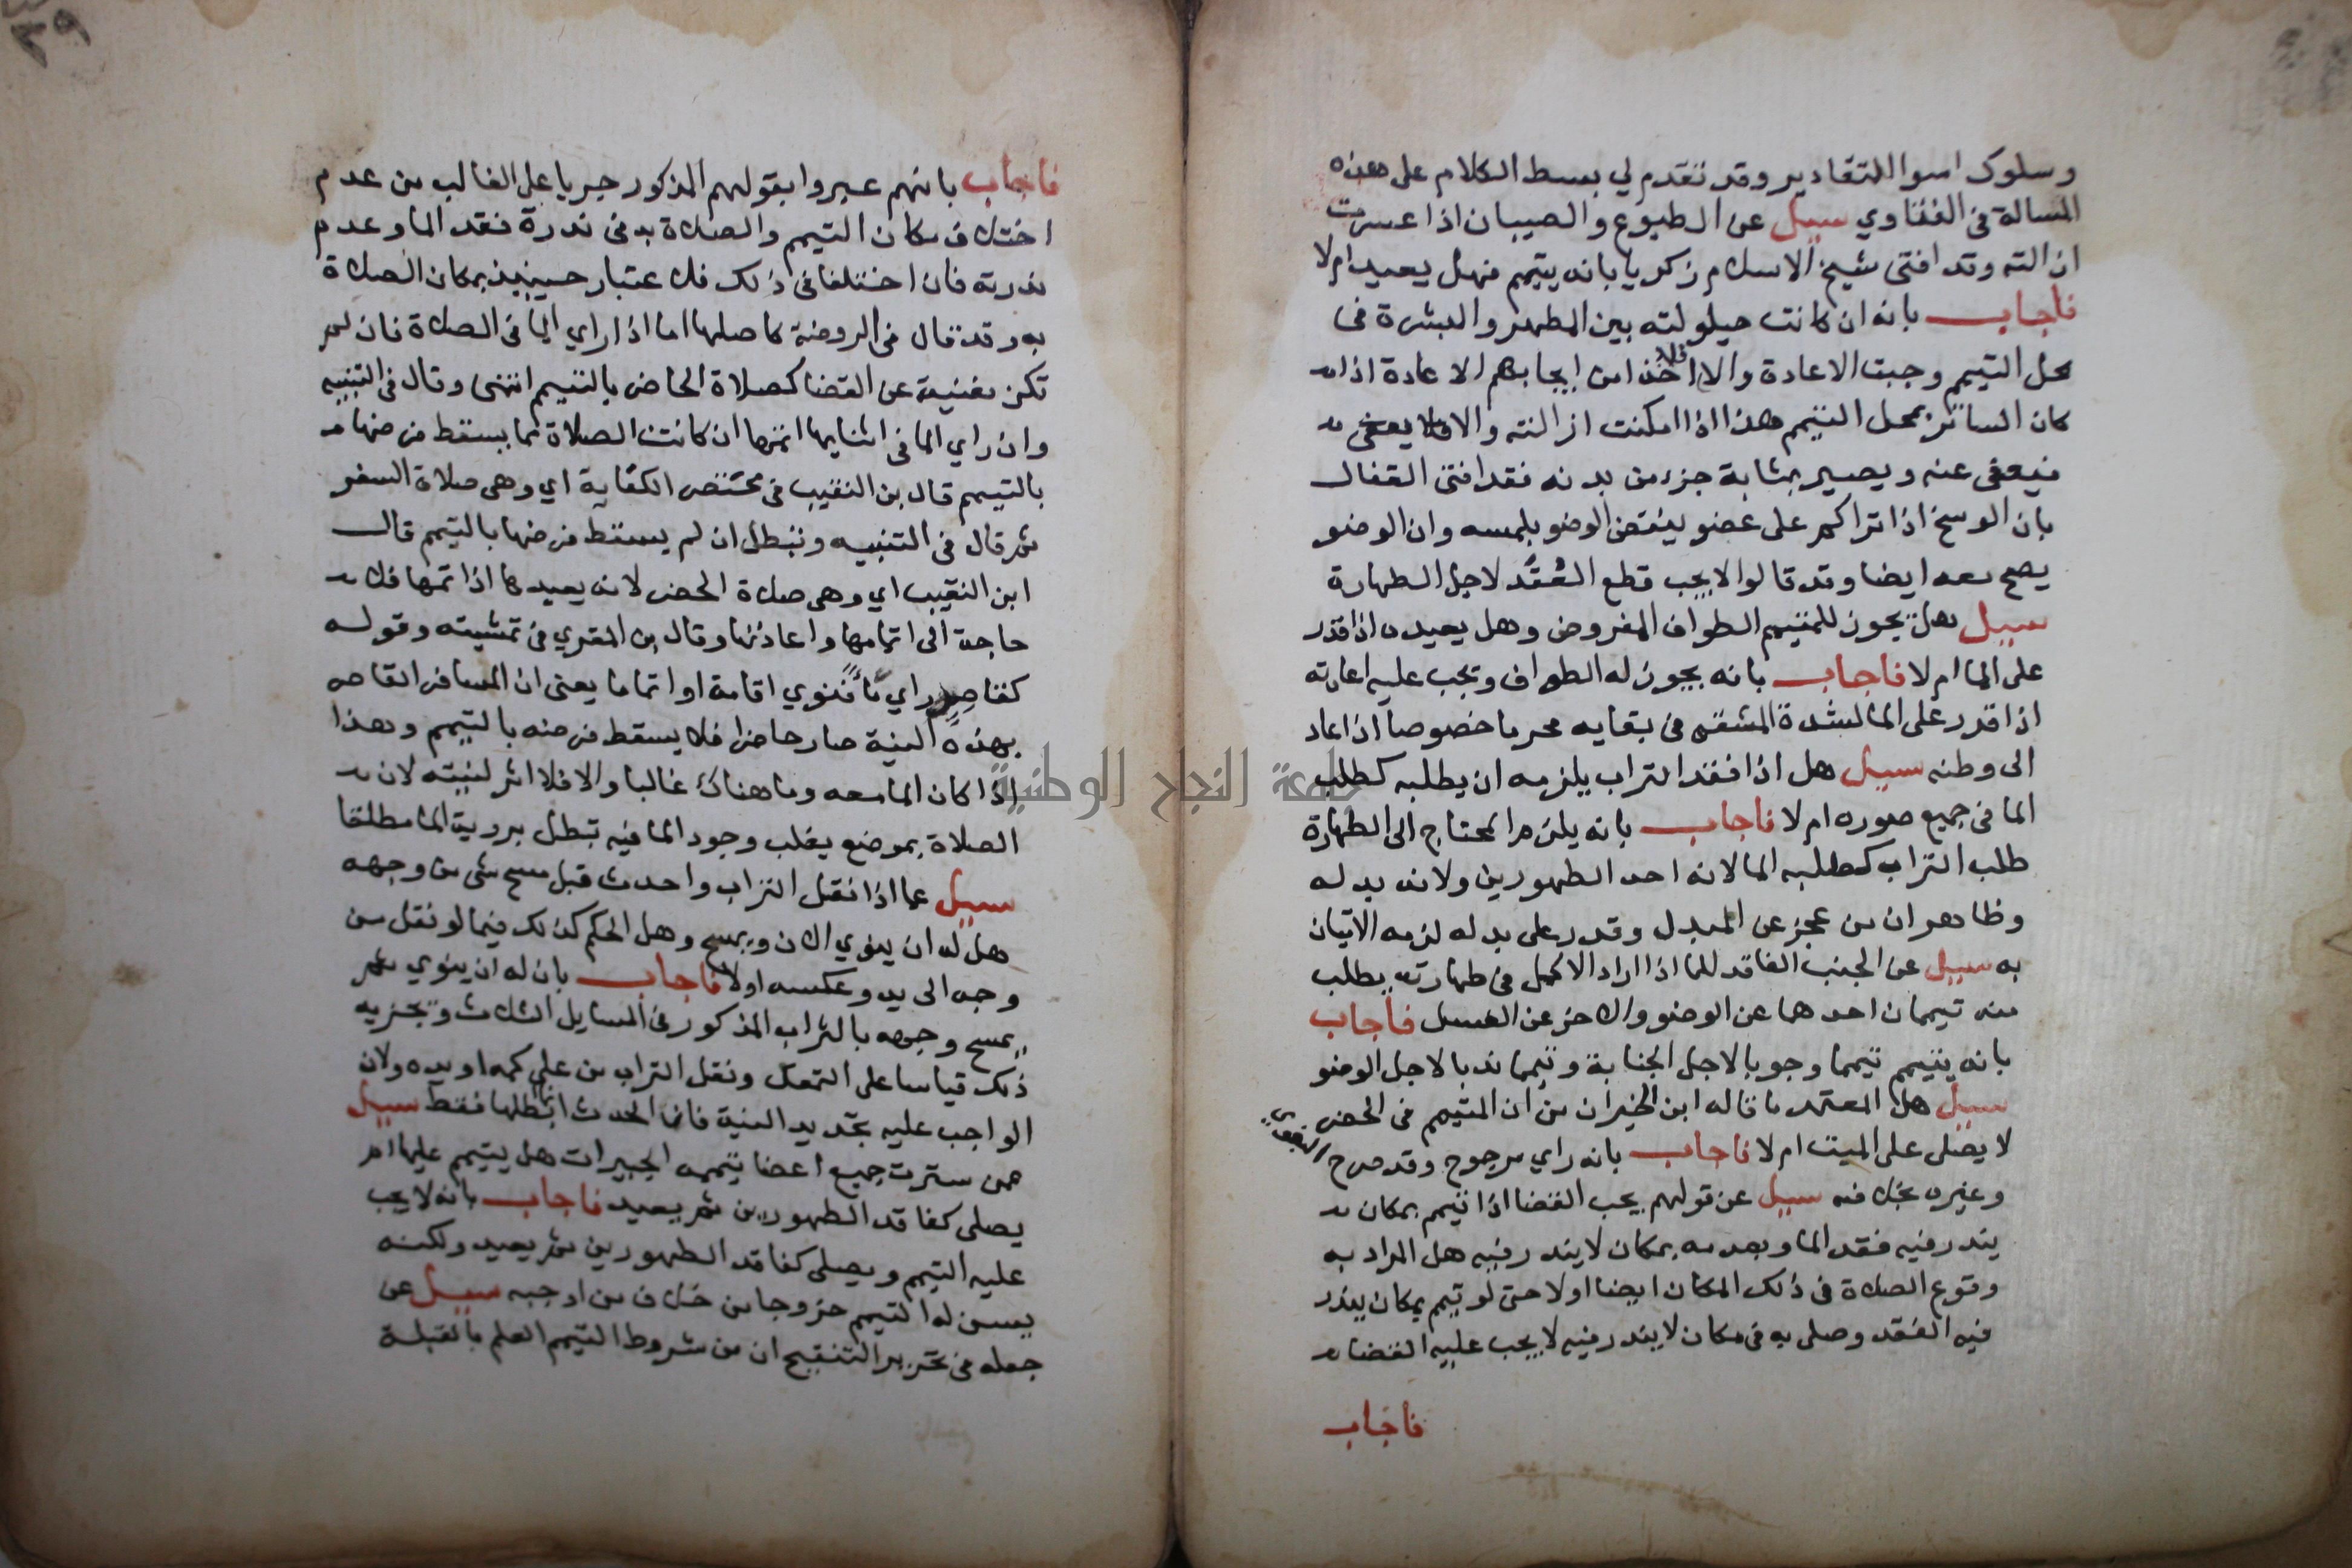 وسلوك اسوا التقادير وقد تقدم لي بسط الكلام على هذه
المسالة في الفتاوي سيل عن الطبوع والصيبان اذا عسرت
ازالته وقد افتى شيخ الاسلام زكريا بانه يتيمم فهل يعيد ام لا
فاجاب بانه ان كانت حيلولته بين المطهر والبشرة في
محل التيمم وجبت الاعادة والا فلا اخذا من ايجابهم الاعادة اذا
كان الساتر بمحل التيمم هذا اذا امكنت ازالته والا
فيعفى عنه ويصير بمثابة جزء من بدنه فقد افتى القفال
بان الوسخ اذا تراكم على عضو ينقض الوضو بلمسه وان الوضو
يصح معه ايضا وقد قالوا لا يجب قطع العُقَد لاجل الطهارة
سيل هل يجوز للمتيمم الطواف المفروض وهل يعيده اذا قدر
على الما ام لا فاجاب بانه يجوز له الطواف وتجب عليه اعادته
اذا قدر على الما لشدة المشقة في بقايه محرما خصوصا اذا عاد
الى وطنه سيل هل اذا فقد التراب يلزمه ان يطلبه كطلب
الما في جميع صوره ام لا فاجاب بانه يلزم المحتاج الى الطهارة
طلب التراب كطلبه الما لانه احد الطهورين ولانه بدله
وظاهر ان من عجز عن المبدل وقدر على بدله لزمه الاتيان
به سيل عن الجنب الفاقد للما اذا اراد الاكمل في طهارته يطلب
منه تيممان احدهما عن الوضو والاخر عن الغسل فاجاب
بانه يتيمم تيمما وجوبا لاجل الجنابة وتيمما ندبا لاجل الوضو
سيل هل المعتمد ما قاله ابن الخيران من ان المتيمم في الحضر
لا يصلى على الميت ام لا فاجاب بانه راي مرجوح وقد صرح
وغيره بخلافه سيل عن قولهم يجب القضا اذا تيمم بمكان
يندر فيه فقد الما وبعدمه بمكان لا يندر فيه هل المراد به
وقوع الصلاة في ذلك المكان ايضا اولا حتى لو تيمم بمكان يندر
فيه الفقد وصلى به في مكان لا يندر فيه لا يجب عليه القضا
فاجاب
فاجاب بانهم عبروا بقولهم المذكور جريا على الغالب من عدم
اختلاف مكان التيمم والصلاة به في ندرة فقد الما وعدم
ندرته فان اختلفا في ذلك فلا عتبار حينيذ بمكان الصلاة
به وقد قال في الروضة كاصلها اما اذا راي الما في الصلاة فان لم
تكن مغنية عن القضا كصلاة الحاضر بالتيمم انتهى وقال في التنبيه
وان راي الما في اثنايها اتمها ان كانت الصلاة مما يسقط فرضها
بالتيمم قال بن النقيب في مختصر الكفاية اي وهي صلاة السفر
ثم قال في التنبيه وتبطل ان لم يسقط فرضها بالتيمم قال
ابن النقيب اي وهي صلاة الحضر لانه يعيدها اذا تمها فلا
حاجة الى اتمامها واعادتها وقال بن المقري في تمشيته وقوله
كقاصِرٍ راي مًا فنوي اقامة او اتماما يعني ان المسافر القاصر
بهذه النية صار حاضرا فلا يسقط فرضه بالتيمم وهذا
اذا كان الما معه وما هناك غالبا والا فلا اثر لنيته لان
الصلاة بموضع يغلب وجود الما فيه تبطل بروية الما مطلقا
سيل عما اذا نقل التراب واحدث قبل مسح شي من وجهه
هل له ان ينوي الان ويمسح وهل الحكم كذلك فيما لو نقل من
وجه الى يد وعكسه اولا فاجاب بان له ان ينوي ثم
يمسح وجهه بالتراب المذكور في المسايل الثلاث وتجزيه
ذلك قياسا على التمعك ونقل التراب من على كمه او يده ولان
الواجب عليه تجديد النية فانما الحدث ابطلها فقط سيل
عمن سترت جميع اعضا تيممه الجبيرات هل يتيمم عليها ام
يصلى كفاقد الطهورين ثم يعيد فاجاب بانه لا يجب
عليه التيمم ويصلى كفاقد الطهورين ثم يعيد ولكنه
يسن له التيمم خروجا من خلاف من اوجبه سيل عن
جعله في تحرير التنقيح ان من شروط التيمم العلم بالقبلة
جامعة النجاح الوطنية